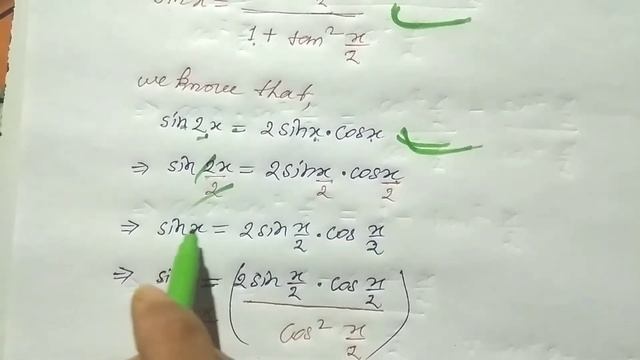 sin x = 2
1 + tan² x/2
we know that,
sin 2x = 2 sin x · cos x
⇒ sin 2x/2 = 2 sin x/2 · cos x/2
⇒ sin x = 2 sin x/2 · cos x/2
⇒ = (2 sin x/2 · cos x/2 / cos² x/2)